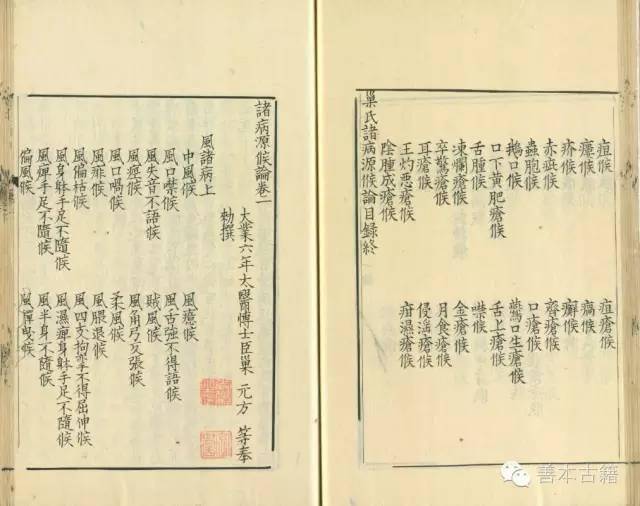 疽候　疽瘡候
瘻候　瘑候
疥候　癬候
赤疵候　臍瘡候
蟲胞候　口瘡候
鵝口候　鷰口生瘡候
口下黃肥瘡候　舌上瘡候
舌腫候　噤候
凍爛瘡候　金瘡候
卒驚瘡候　月食瘡候
耳瘡候　侵淫瘡候
王灼惡瘡候　疳濕瘡候
陰腫成瘡候
巢氏諸病源候論目錄終
諸病源候論卷一
大業六年太醫博士臣巢 元方 等奉
勑撰
風諸病上
中風候　風癔候
風口噤候　風舌強不得語候
風失音不語候　賊風候
風痙候　風角弓反張候
風口喎候　柔風候
風痱候　風腲退候
風偏枯候　風四支拘攣不得屈伸候
風身躰手足不隨候　風濕痺身躰手足不隨候
風痺手足不隨候　風半身不隨候
偏風候　風嚲曳候
善本古籍